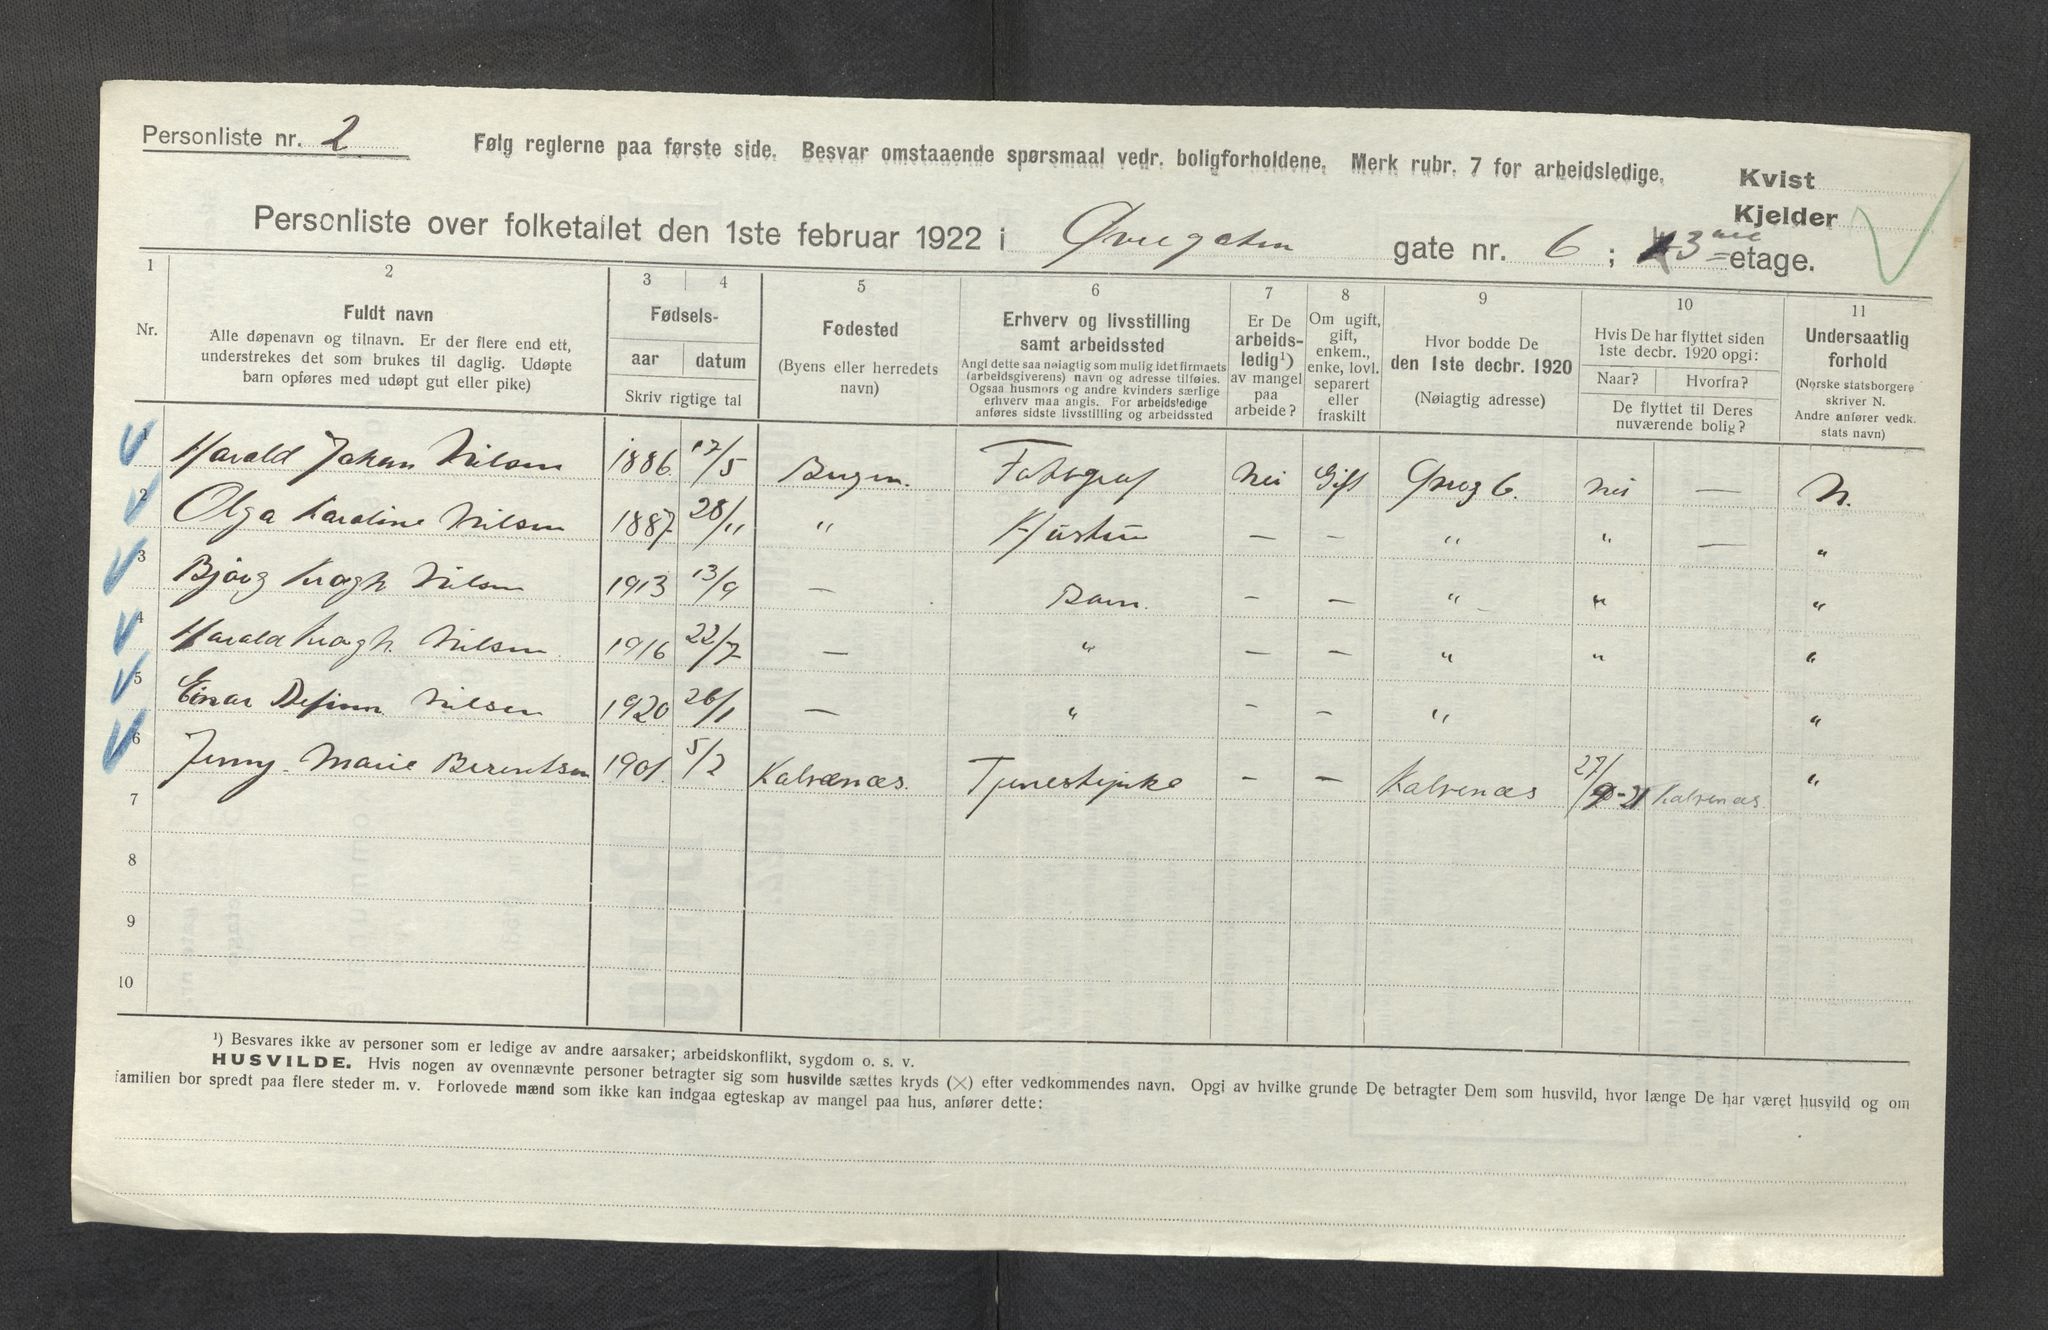 Personliste nr. 2
Følg reglerne paa første side. Besvar omstaaende spørsmaal vedr. boligforholdene. Merk rubr. 7 for arbeidsledige.
Kvist
Kjelder
Personliste over folketallet den 1ste februar 1922 i Øvregaten gate nr. 6; 3 etage.
1 2 3 4 5 6 7 8 9 10 11
Nr.
Fuldt navn
Alle døpenavn og tilnavn. Er der flere end ett,
understrekes det som brukes til daglig. Udøpte
barn opføres med udøpt gut eller pike)
Fødsels-
aar datum
Skriv rigtige tal
Fødested
(Byens eller herredets
navn)
Erhverv og livsstilling
samt arbeidssted
Angi dette saa nøiagtig som mulig idet firmaets
(arbeidsgiverens) navn og adresse tilføies.
Ogsaa husmors og andre kvinders særlige
erhverv maa angis. For arbeidsledige
anføres sidste livsstilling og arbeidssted
Er De
arbeids-
ledig¹)
av mangel
paa
arbeide?
Om ugift,
gift,
enkem.,
enke, lovl.
separert
eller
fraskilt
Hvor bodde De
den 1ste decbr. 1920
(Nøiagtig adresse)
Hvis De har flyttet siden
1ste decbr. 1920 opgi:
Naar? Hvorfra?
De flyttet til Deres
nuværende bolig?
Undersaatlig
forhold
(Norske statsborgere
skriver N.
Andre anfører vedk.
stats navn)
1 Harald Johan Nilsen 1886 17/5 Bergen. Fotograf Nei Gift Øvreg 6. Nei — N.
2 Olga Karoline Nilsen 1887 28/11 " Hustru — — " " — "
3 Bjørg Krogh Nilsen 1913 13/9 — Barn. — — " " "
4 Harald Krogh Nilsen 1916 22/7 — " — — " " "
5 Einar Nilsen 1920 26/1 — " — — " "
6 Jenny Marie Berentsen 1901 5/2 Kalvenæs. Tjenestepike — — Kalvenæs 27/9-21 Kalvenæs. "
7
8
9
10
¹) Besvares ikke av personer som er ledige av andre aarsaker; arbeidskonflikt, sygdom o. s. v.
HUSVILDE. Hvis nogen av ovennævnte personer betragter sig som husvilde sættes kryds (×) efter vedkommendes navn. Opgi av hvilke grunde De betragter Dem som husvild, hvor længe De har været husvild og om
familien bor spredt paa flere steder m. v. Forlovede mænd som ikke kan indgaa egteskap av mangel paa hus, anfører dette: